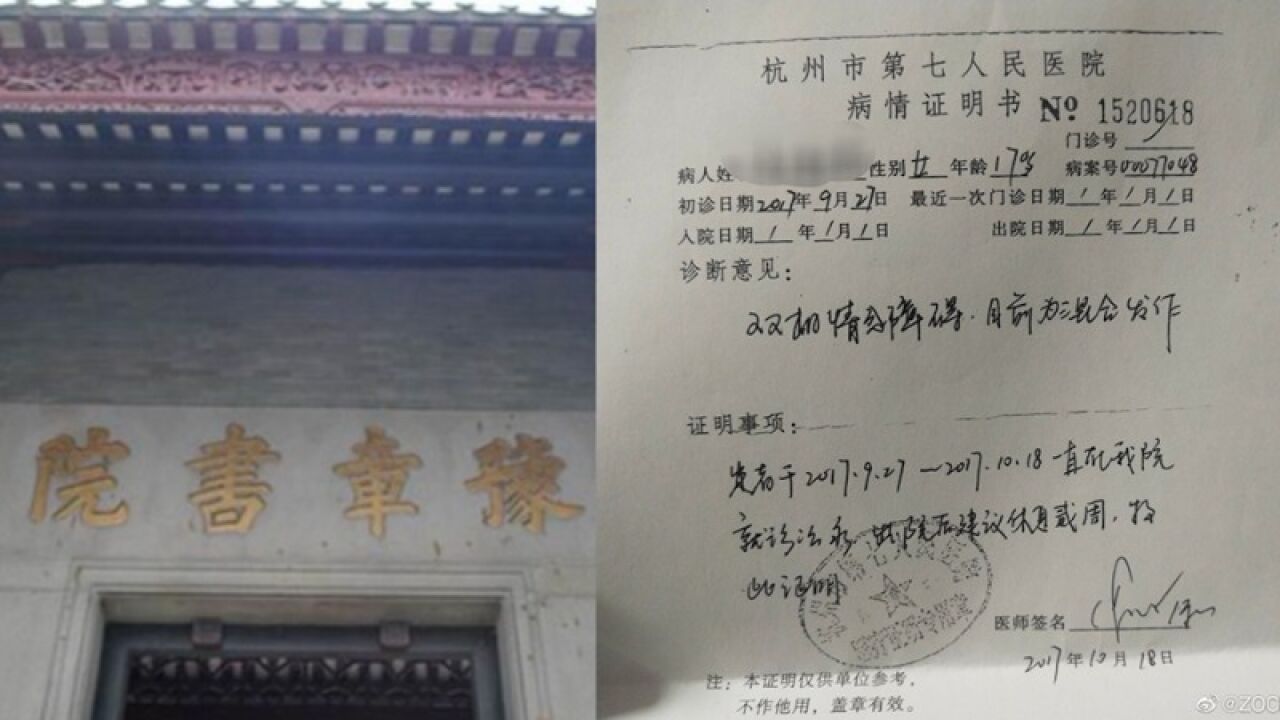 豫章書院
杭州市第七人民医院
病情证明书 № 1520618
门诊号 /
病人姓 性别 女 年龄 17岁 病案号 00077048
初诊日期 2017年9月27日 最近一次门诊日期 / 年 / 月 / 日
入院日期 / 年 / 月 / 日 出院日期 / 年 / 月 / 日
诊断意见：
双相情感障碍.目前为混合发作
证明事项：
患者于2017.9.27—2017.10.18一直在我院
就诊治疗 出院后建议休息贰周.特
此证明
医师签名
2017年10月18日
注：本证明仅供单位参考，
不作他用，盖章有效。
@ZOO